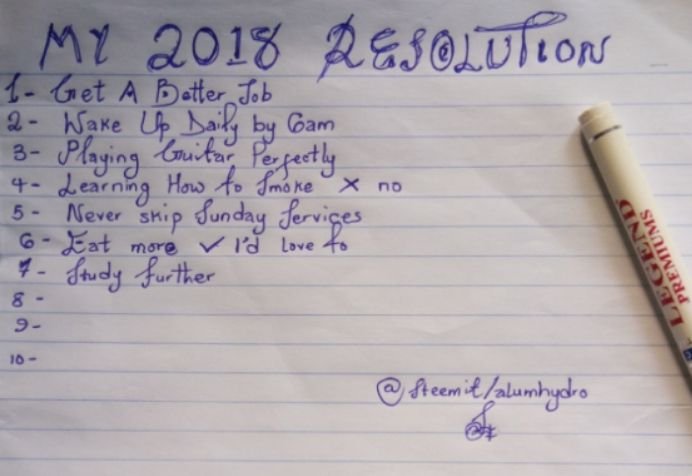 MY 2018 RESOLUTION
1- Get A Better Job
2- Wake Up Daily by 6am
3- Playing Guitar Perfectly
4- Learning How to Smoke × no
5- Never skip Sunday Services
6- Eat more ✓ I'd Love to
7- Study further
8-
9-
10-
@steemit/alumhydro
LEGEND
PREMIUMS